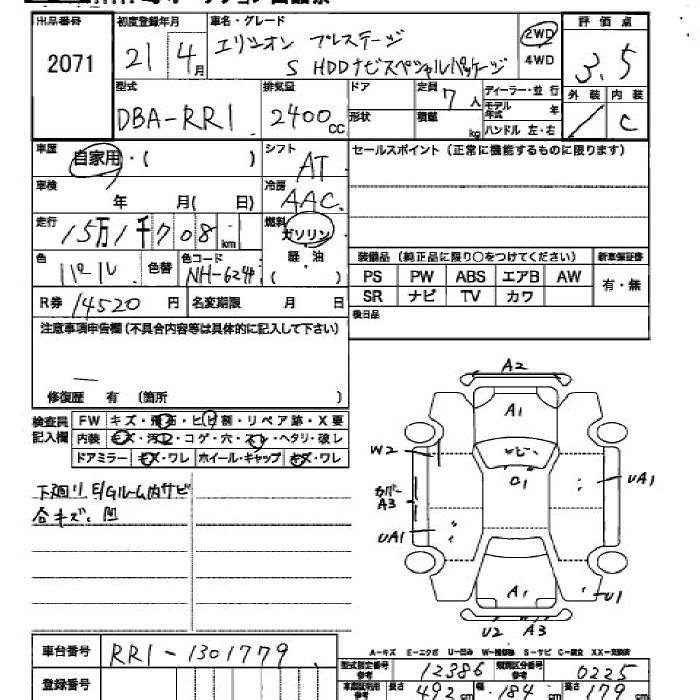 出品番号 初度登録年月 車名・グレード 評価点
2071 21 4月 エリシオン プレステージ 2WD 3.5
S HDDナビスペシャルパッケージ 4WD
型式 排気量 ドア 定員 ディーラー・並行 外装 内装
DBA-RR1 2400cc 形状 7人 モデル年式 年 C
積載 kg ハンドル 左・右
車歴 自家用・( ) シフト AT セールスポイント (正常に機能するものに限ります)
車検 年 月( 日) 冷房 AAC
走行 15万1千708km 燃料 ガソリン
軽・油
( )
色 パール 色替 色コード NH-624P
装備品 (純正品に限り○をつけてください) 新車保証書
PS PW ABS エアB AW 有・無
SR ナビ TV カワ
R券 14520円 名変期限 月 日 後日品
注意事項申告欄(不具合内容等は具体的に記入して下さい)
修復歴 有 (箇所 )
検査員 FW キズ・飛石・ヒビ割・リペア跡・X要
記入欄 内装 キズ・汚レ・コゲ・穴・スレ・ヘタリ・破レ
ドアミラー キズ・ワレ ホイール・キャップ キズ・ワレ
下廻リ E/Gルーム内サビ
合キズ、凹
A2
A1
W2
C1
カバー
A3
UA1
UA1
A1
U1
U2 A3
A-キズ E-エクボ U-凹み W-補修跡 S-サビ C-腐食 XX-交換済
車台番号 RR1-1301779
型式指定番号 参考 12386 類別区分番号 参考 0225
登録番号
長さ 492cm 幅 184cm 高さ 179cm